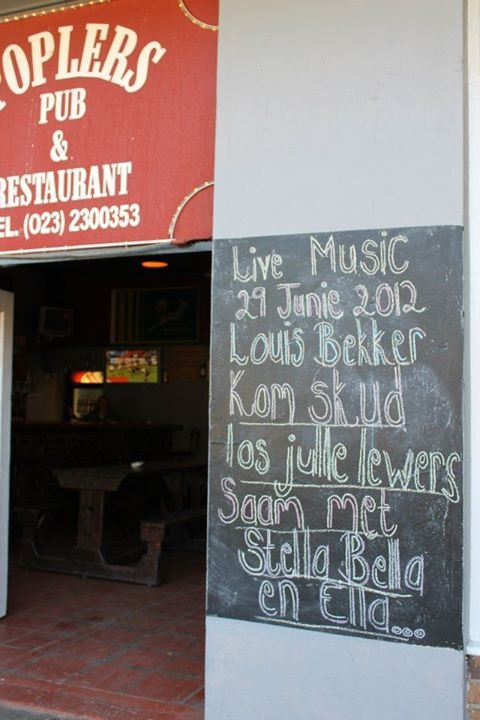 POPLERS
PUB
&
RESTAURANT
TEL. (023) 2300353
Live Music
29 Junie 2012
Louis Bekker
Kom skud
los julle lewers
Saam met
Stella Bella
en Ella...